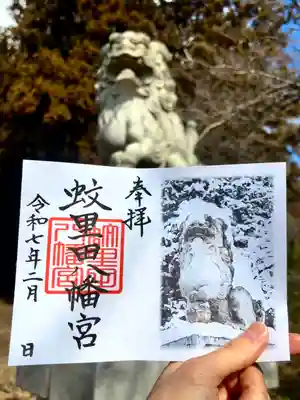 奉拝
蛟里田八幡宮
令和七年二月 日